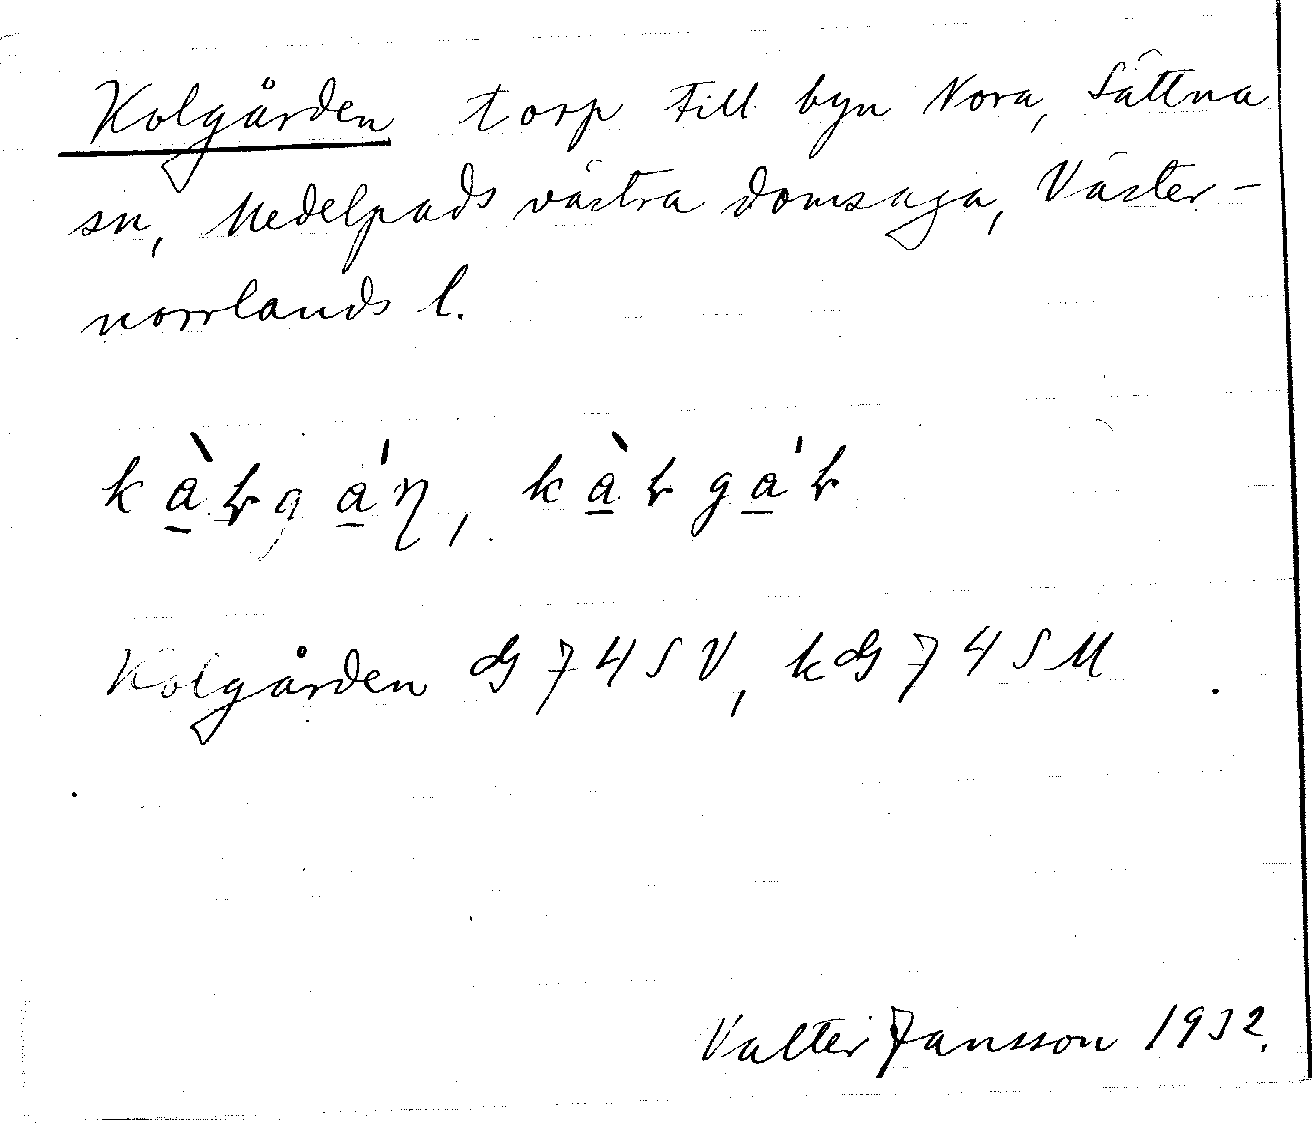 Kolgården torp till byn Nora, Sättna
sn, Medelpads västra domsaga, Väster-
norrlands l.
kàƚgáɳ, kàƚgáƚ
Kolgården GS 74 SV, kGS 74 SM
Valter Jansson 1932.